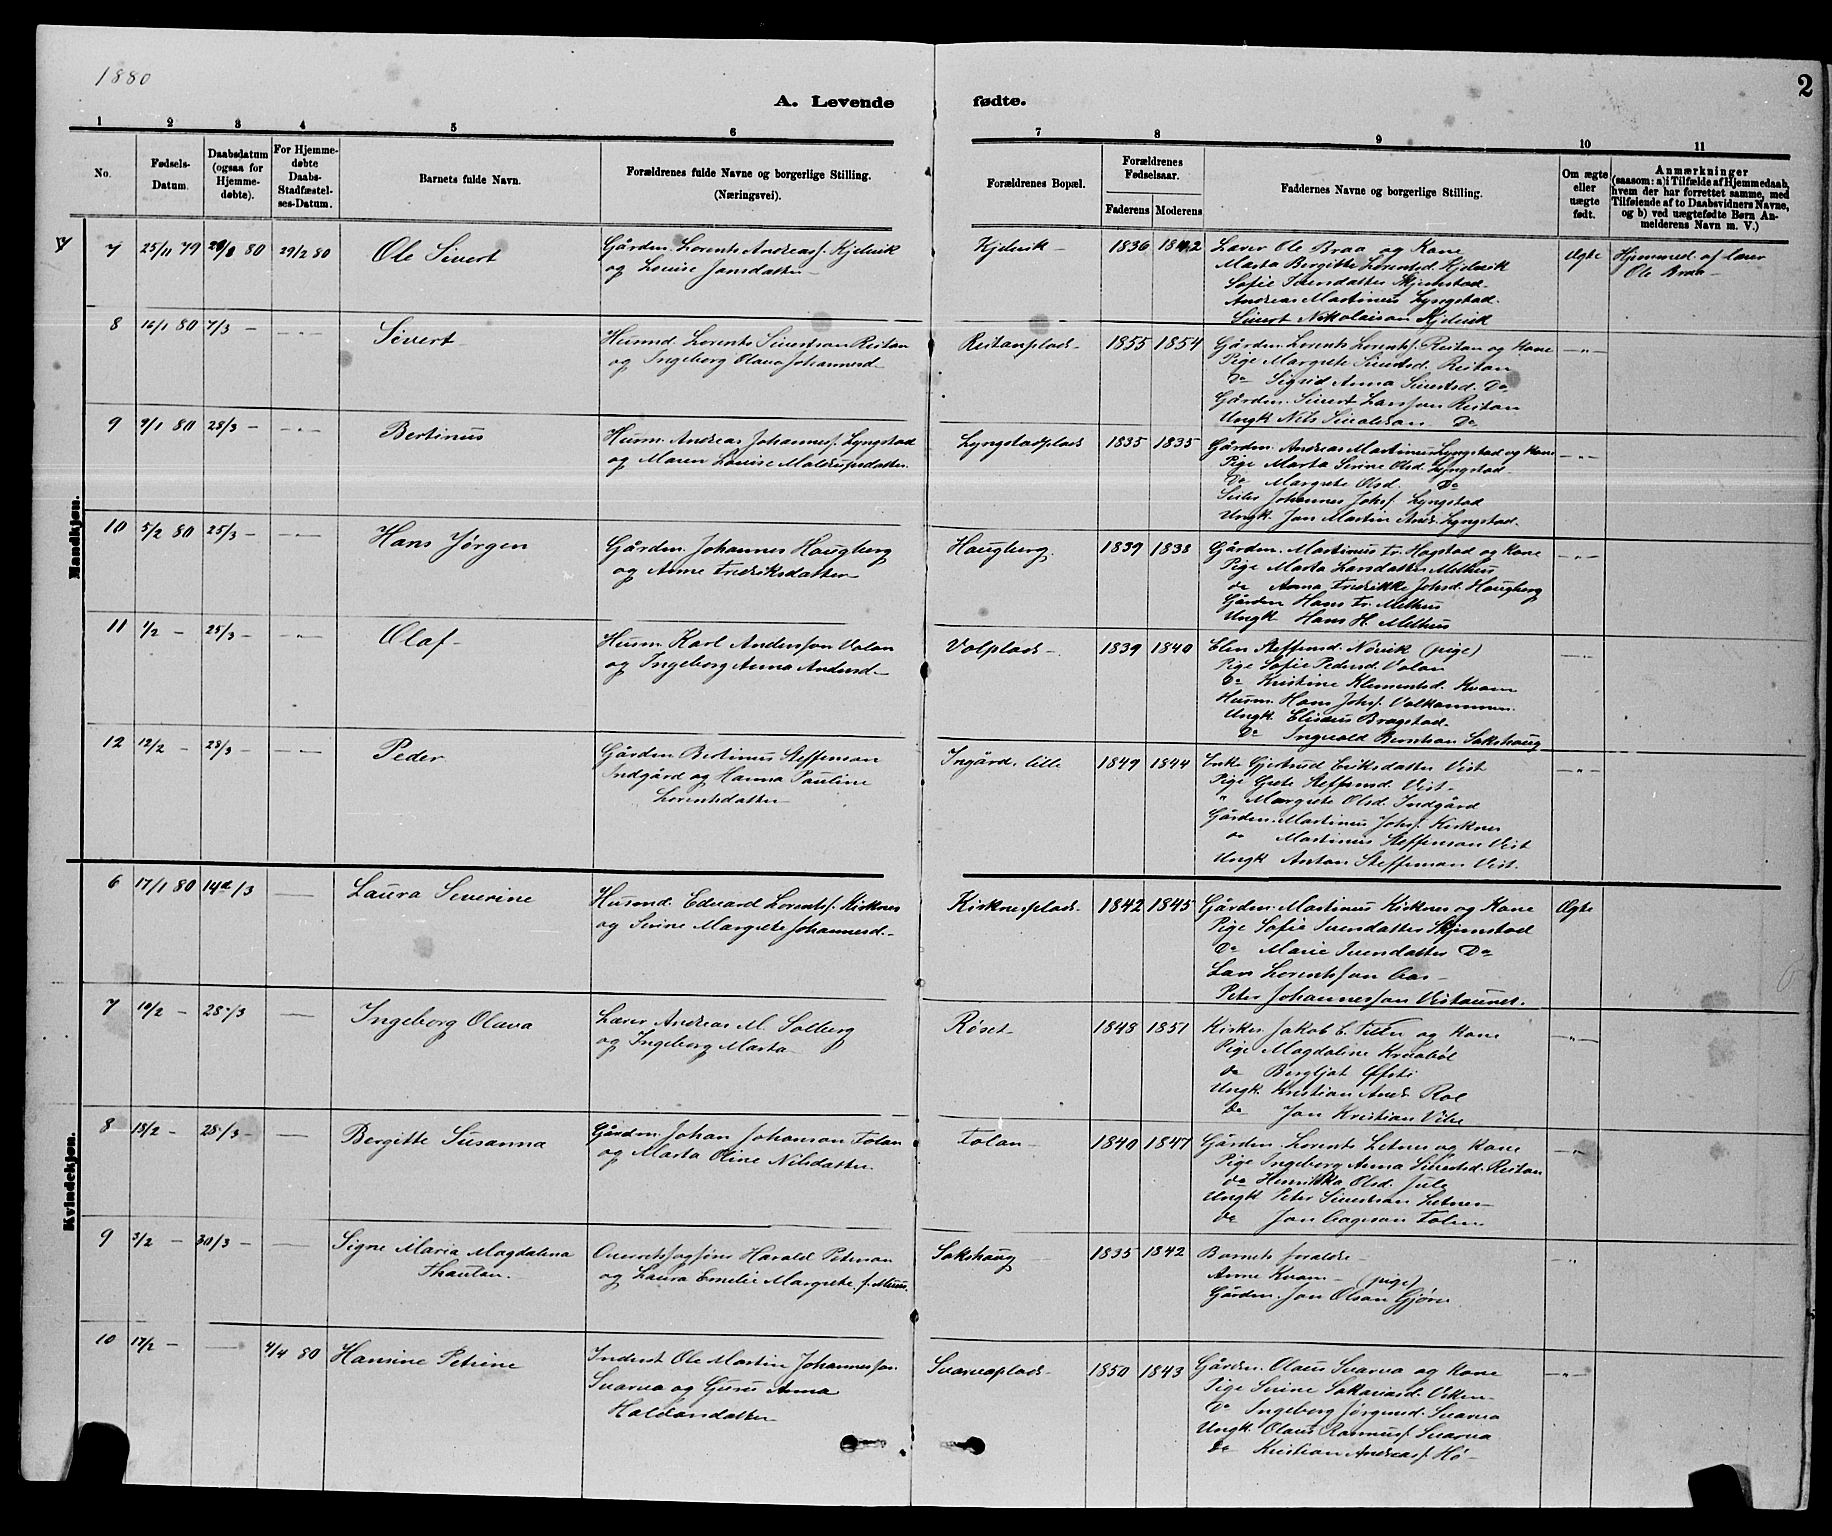 1880
2
A. Levende fødte.
1 2 3 4 5 6 7 8 9 10 11
No.
Fødsels-
Datum.
Daabsdatum
(ogsaa for
Hjemme-
døbte).
For Hjemme-
døbte
Daabs-
Stadfæstel-
ses-Datum.
Barnets fulde Navn.
Forældrenes fulde Navne og borgerlige Stilling.
(Næringsvei).
Forældrenes Bopæl.
Forældrenes
Fødselsaar.
Faderens Moderens
Faddernes Navne og borgerlige Stilling.
Om ægte
eller
uægte
født.
Anmærkninger
(saasom: a) i Tilfælde af Hjemmedaab,
hvem der har forrettet samme, med
Tilføiende af to Daabsvidners Navne,
og b) ved uægtefødte Børn An-
melderens Navn m. V.)
Mandkjøn.
7 25/11 79 80 29/2 80 Ole Sivert
Gården. Lorents Andreas. Kjelvik
og Louise Jansdatter
Kjelvik 1836
Lærer Ole Braa og Kone
Marta Bergitte Lorentsd. Kjelvik
Sofie
Andreas Martinus Lyngstad.
Sivert Nikolaison Kjelvik
Ægte
Hjemmed. af lærer
Ole Braa
8 16/1 80 7/3 — —"— Sivert
Husmd. Lorents Sivertson Reitan
og Ingeborg Olava Johannesd.
Reitanplads 1855 1854
Gården. Lorents Lorentsf. Reitan og Kone
Pige Margrete Sivertsd. Reitan
Do Sigrid Anna Sivertsd. Do
Gården. Sivert Larsson Reitan
Ungk. Nils Do
—"—
9 9/1 80 28/3 — —"— Bertinus
Husm. Andreas Johannesf. Lyngstad
og Maren Louise
Lyngstadplads 1835 1835
Gården. Andreas Martinus Lyngstad og Kone
Pige Marta Sirine Olsd. Lyngstad
Do Margrete Olsd. Do
Johannes Johsf. Lyngstad
Ungk. Jon Martin Andr. Lyngstad.
—"—
10 5/2 80 25/3 — —"— Hans Jørgen
Gården. Johannes Haugberg
og Anne Fredriksdatter
Haugberg. 1839 1838
Gården. Martinus Fr. Hagstad og Kone
Pige Marta Larsdatter Melhus
do Anna Fredrikke Johsd. Haugberg
Gården Hans Fr. Melhus
Ungk Hans H. Melhus
—"—
11 1/2 — 25/3 — —"— Olaf
Husm. Karl Andersson Volan
og Ingeborg Anna Andersd.
Volplads 1839 1840
Elen Steffensd. Nørvik (pige)
Pige Sofie Pedersd. Volan
Do Kristine Klemetsd. Kvam
Husm. Hans Johsf. Valkammen.
Ungk. Eliseus Bragstad.
Do Ingvald Berntson Sakshaug
—"—
12 12/2 — 28/3 — — Peder
Gården Bertinus Steffenson
Indgård og Hanna Pauline
Lorentsdatter
Ingård, lille 1849 1844
Enke Gjertrud Eriksdatter Vist
Pige Grete Steffensd. Vist
" Margrete Olsd. Indgård
Gården. Martinus Johsf. Kirknes
do Martinus Steffenson Vist
Ungk Anton Steffenson Vist.
—"—
Kvindekjøn.
6 17/1 80 14de/3 — Laura Severine
Husmd. Edvard Lorentsf. Kirknes
og Sirine Margrete Johannesd.
Kirknesplads. 1842 1845
Gården. Martinus Kirknes og Kone
Pige Sofie Iversdatter Skjemstad
Do Marie Iversdatter Do
Lars Lorentsson Aas
Peter Johannesson Vistaunet.
Ægte
7 10/2 — 28/3 — Ingeborg Olava
Lærer Andreas M. Solberg
og Ingeborg Marta
Røset 1848 1851
Kirkes. Jakob C. og Kone
Pige Magdaline Kraabøl
do Bergljot
Ungk. Kristian Andr. Rol
Do Jon Kristian
—"—
8 18/2 — 28/3 — Bergitte Susanna
Gården. Johan Johanson Tolan
og Marta Oline Nilsdatter.
Tolan 1840 1847
Gården. Lorents Letnes og Kone
Pige Ingeborg Anna Sivertsd. Reitan
do Henrikka Olsd. Jule
Ungk Peter Sivertsan Letnes
Do Jon Aageson Tolan
—"—
9 3/2 — 30/3 — Signe Maria Magdalena
Thaulow.
Overretssagfører Harald Peterson
og Laura Emelie Margrete
Sakshaug 1835 1842
Barnets forældre
Anne Kvam (pige)
Gården. Jon Olson Gjørv
—"—
10 17/2 — — 4/4 80 Hansine Petrine
Inderst Ole Martin Johannesson
Svarva og Guru Anna
Haldorsdatter
Svarvaplads 1850 1843
Gården. Olaus Svarva og Kone
Pige Sirine Sakariasd. Viken
Do Ingeborg Jørgensd. Svarva
Ungk. Olaus Rasmusf. Svarva
Do Kristian Andreasf. Hø
—"—